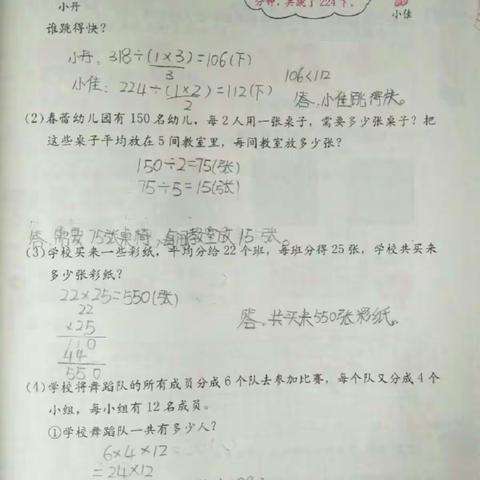 小丹
分钟,共跳了224下。
小佳
谁跳得快?
小丹:318÷(1×3)=106(下)
3
106<112
小佳:224÷(1×2)=112(下)
2
答:小佳跳得快。
(2)春蕾幼儿园有 150 名幼儿,每 2 人用一张桌子,需要多少张桌子?把
这些桌子平均放在 5 间教室里,每间教室放多少张?
150÷2=75(张)
75÷5=15(张)
答:需要75张桌椅,每间教室放15张。
(3)学校买来一些彩纸,平均分给 22 个班,每班分得 25 张,学校共买来
多少张彩纸?
22×25=550(张)
22
×25
110
44
550
答:共买来550张彩纸。
(4)学校将舞蹈队的所有成员分成 6 个队去参加比赛,每个队又分成 4 个
小组,每小组有 12 名成员。
①学校舞蹈队一共有多少人?
6×4×12
=24×12